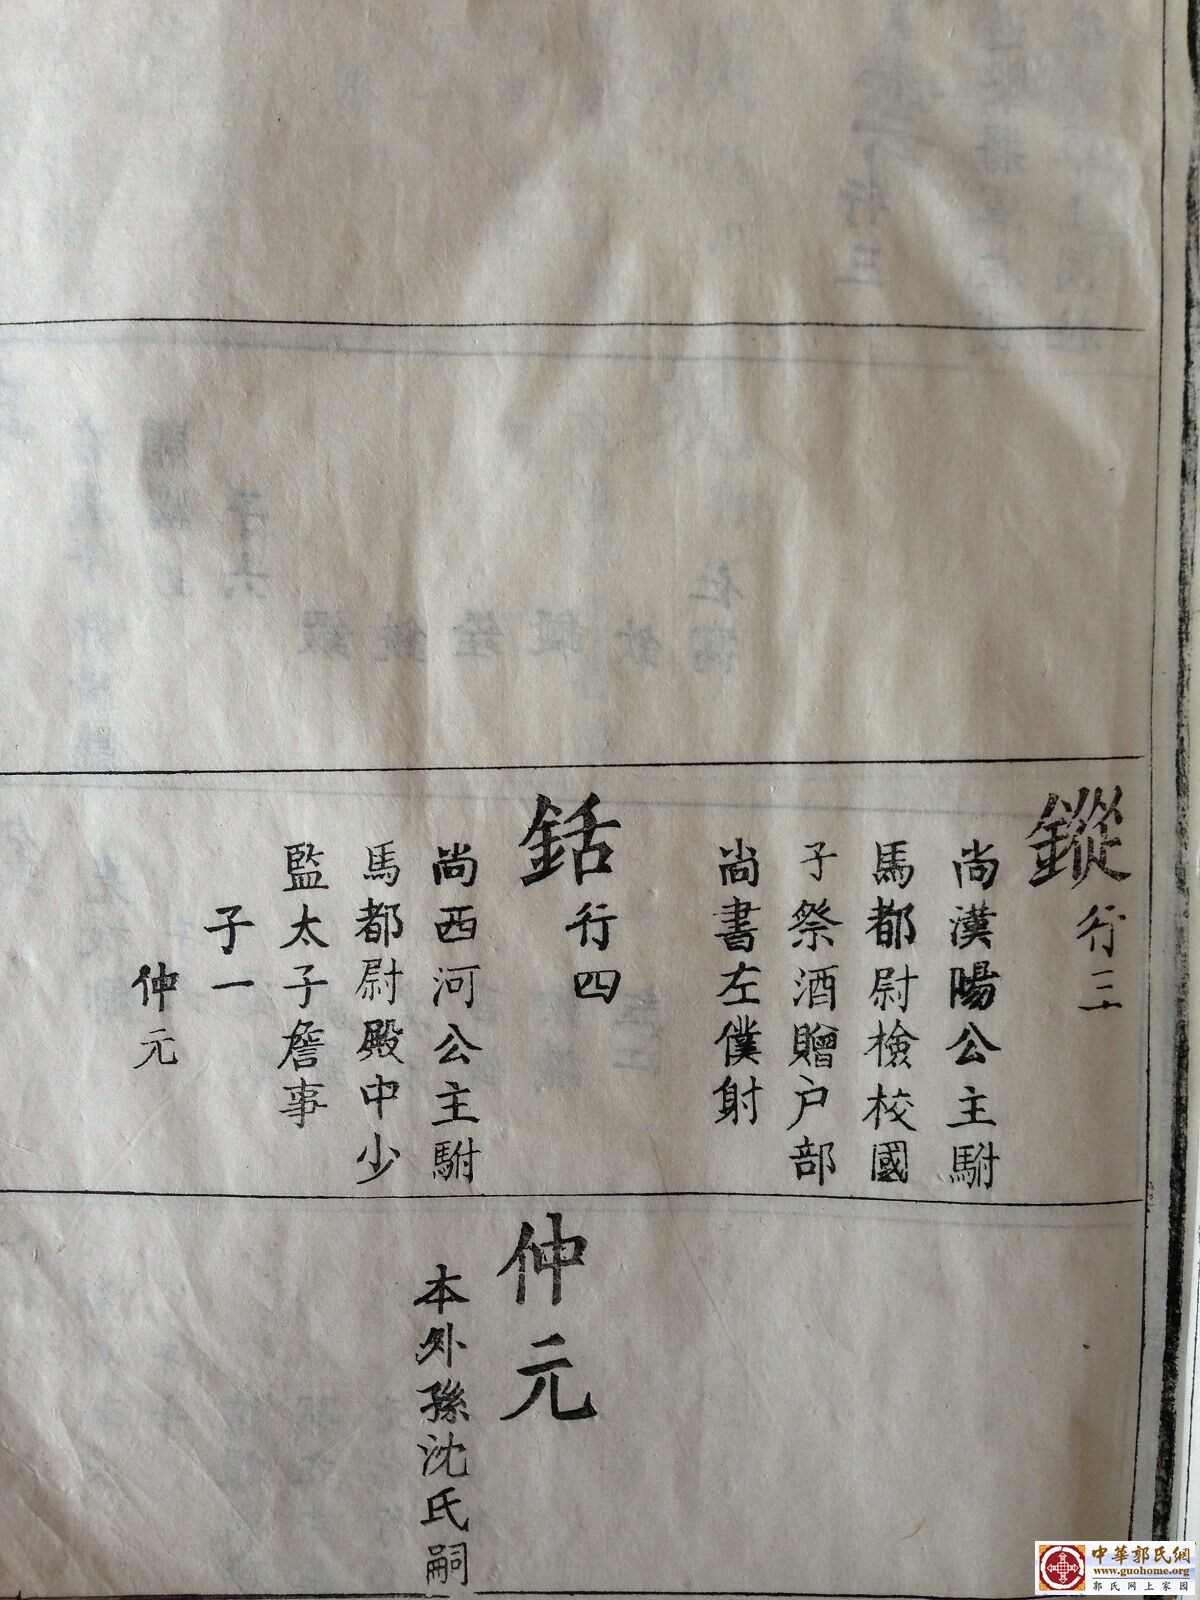 鏦 行三
尚漢陽公主駙
馬都尉檢校國
子祭酒贈户部
尚書左僕射
銛 行四
尚西河公主駙
馬都尉殿中少
監太子詹事
子一
仲元
仲元
本外孫沈氏嗣
中華郭氏網
www.guohome.org
郭氏网上家园